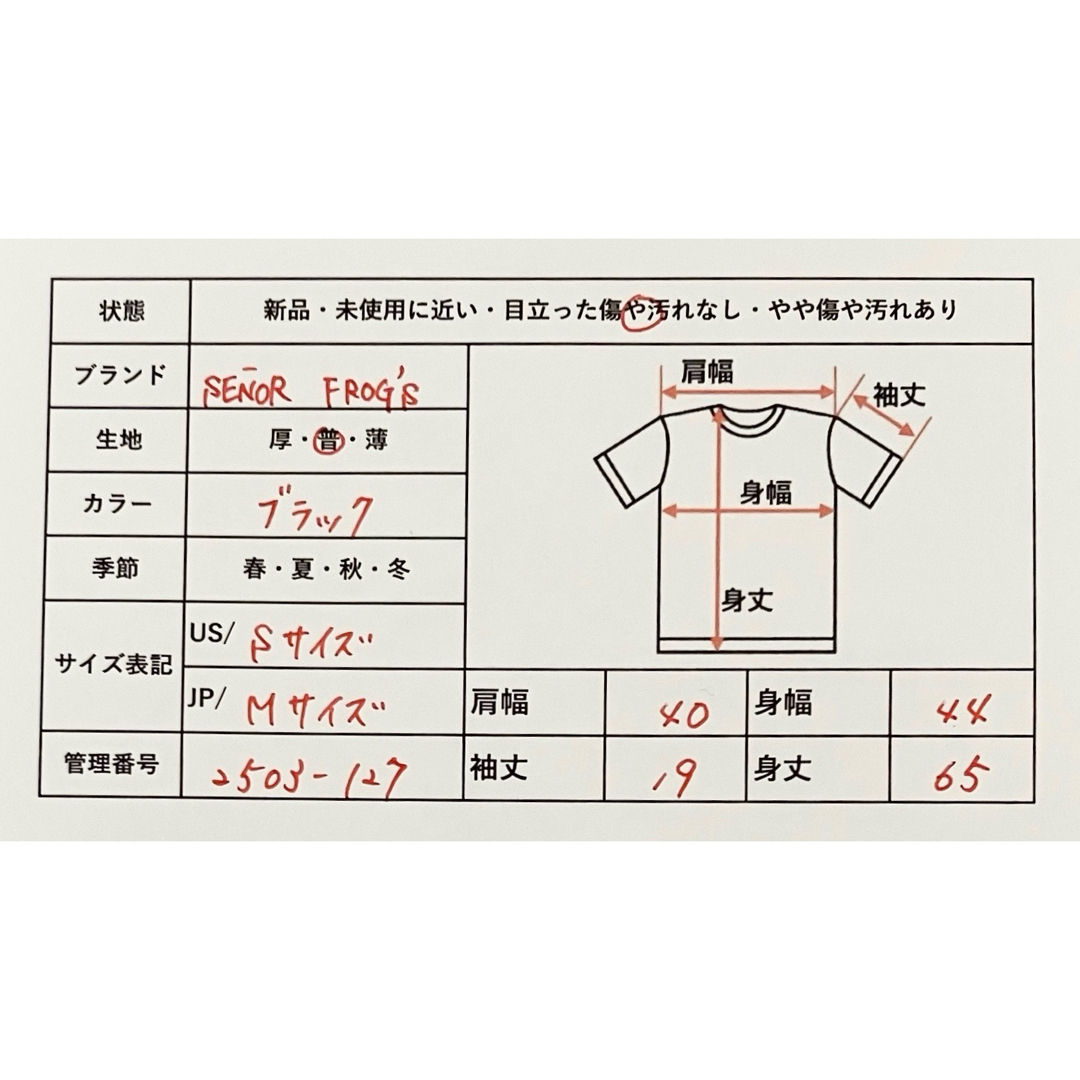 状態 新品・未使用に近い・目立った傷や汚れなし・やや傷や汚れあり
ブランド SEÑOR FROG'S
生地 厚・普・薄
カラー ブラック
季節 春・夏・秋・冬
サイズ表記 US/ Sサイズ
JP/ Mサイズ
管理番号 2503-127
肩幅
袖丈
身幅
身丈
肩幅 40 身幅 44
袖丈 19 身丈 65